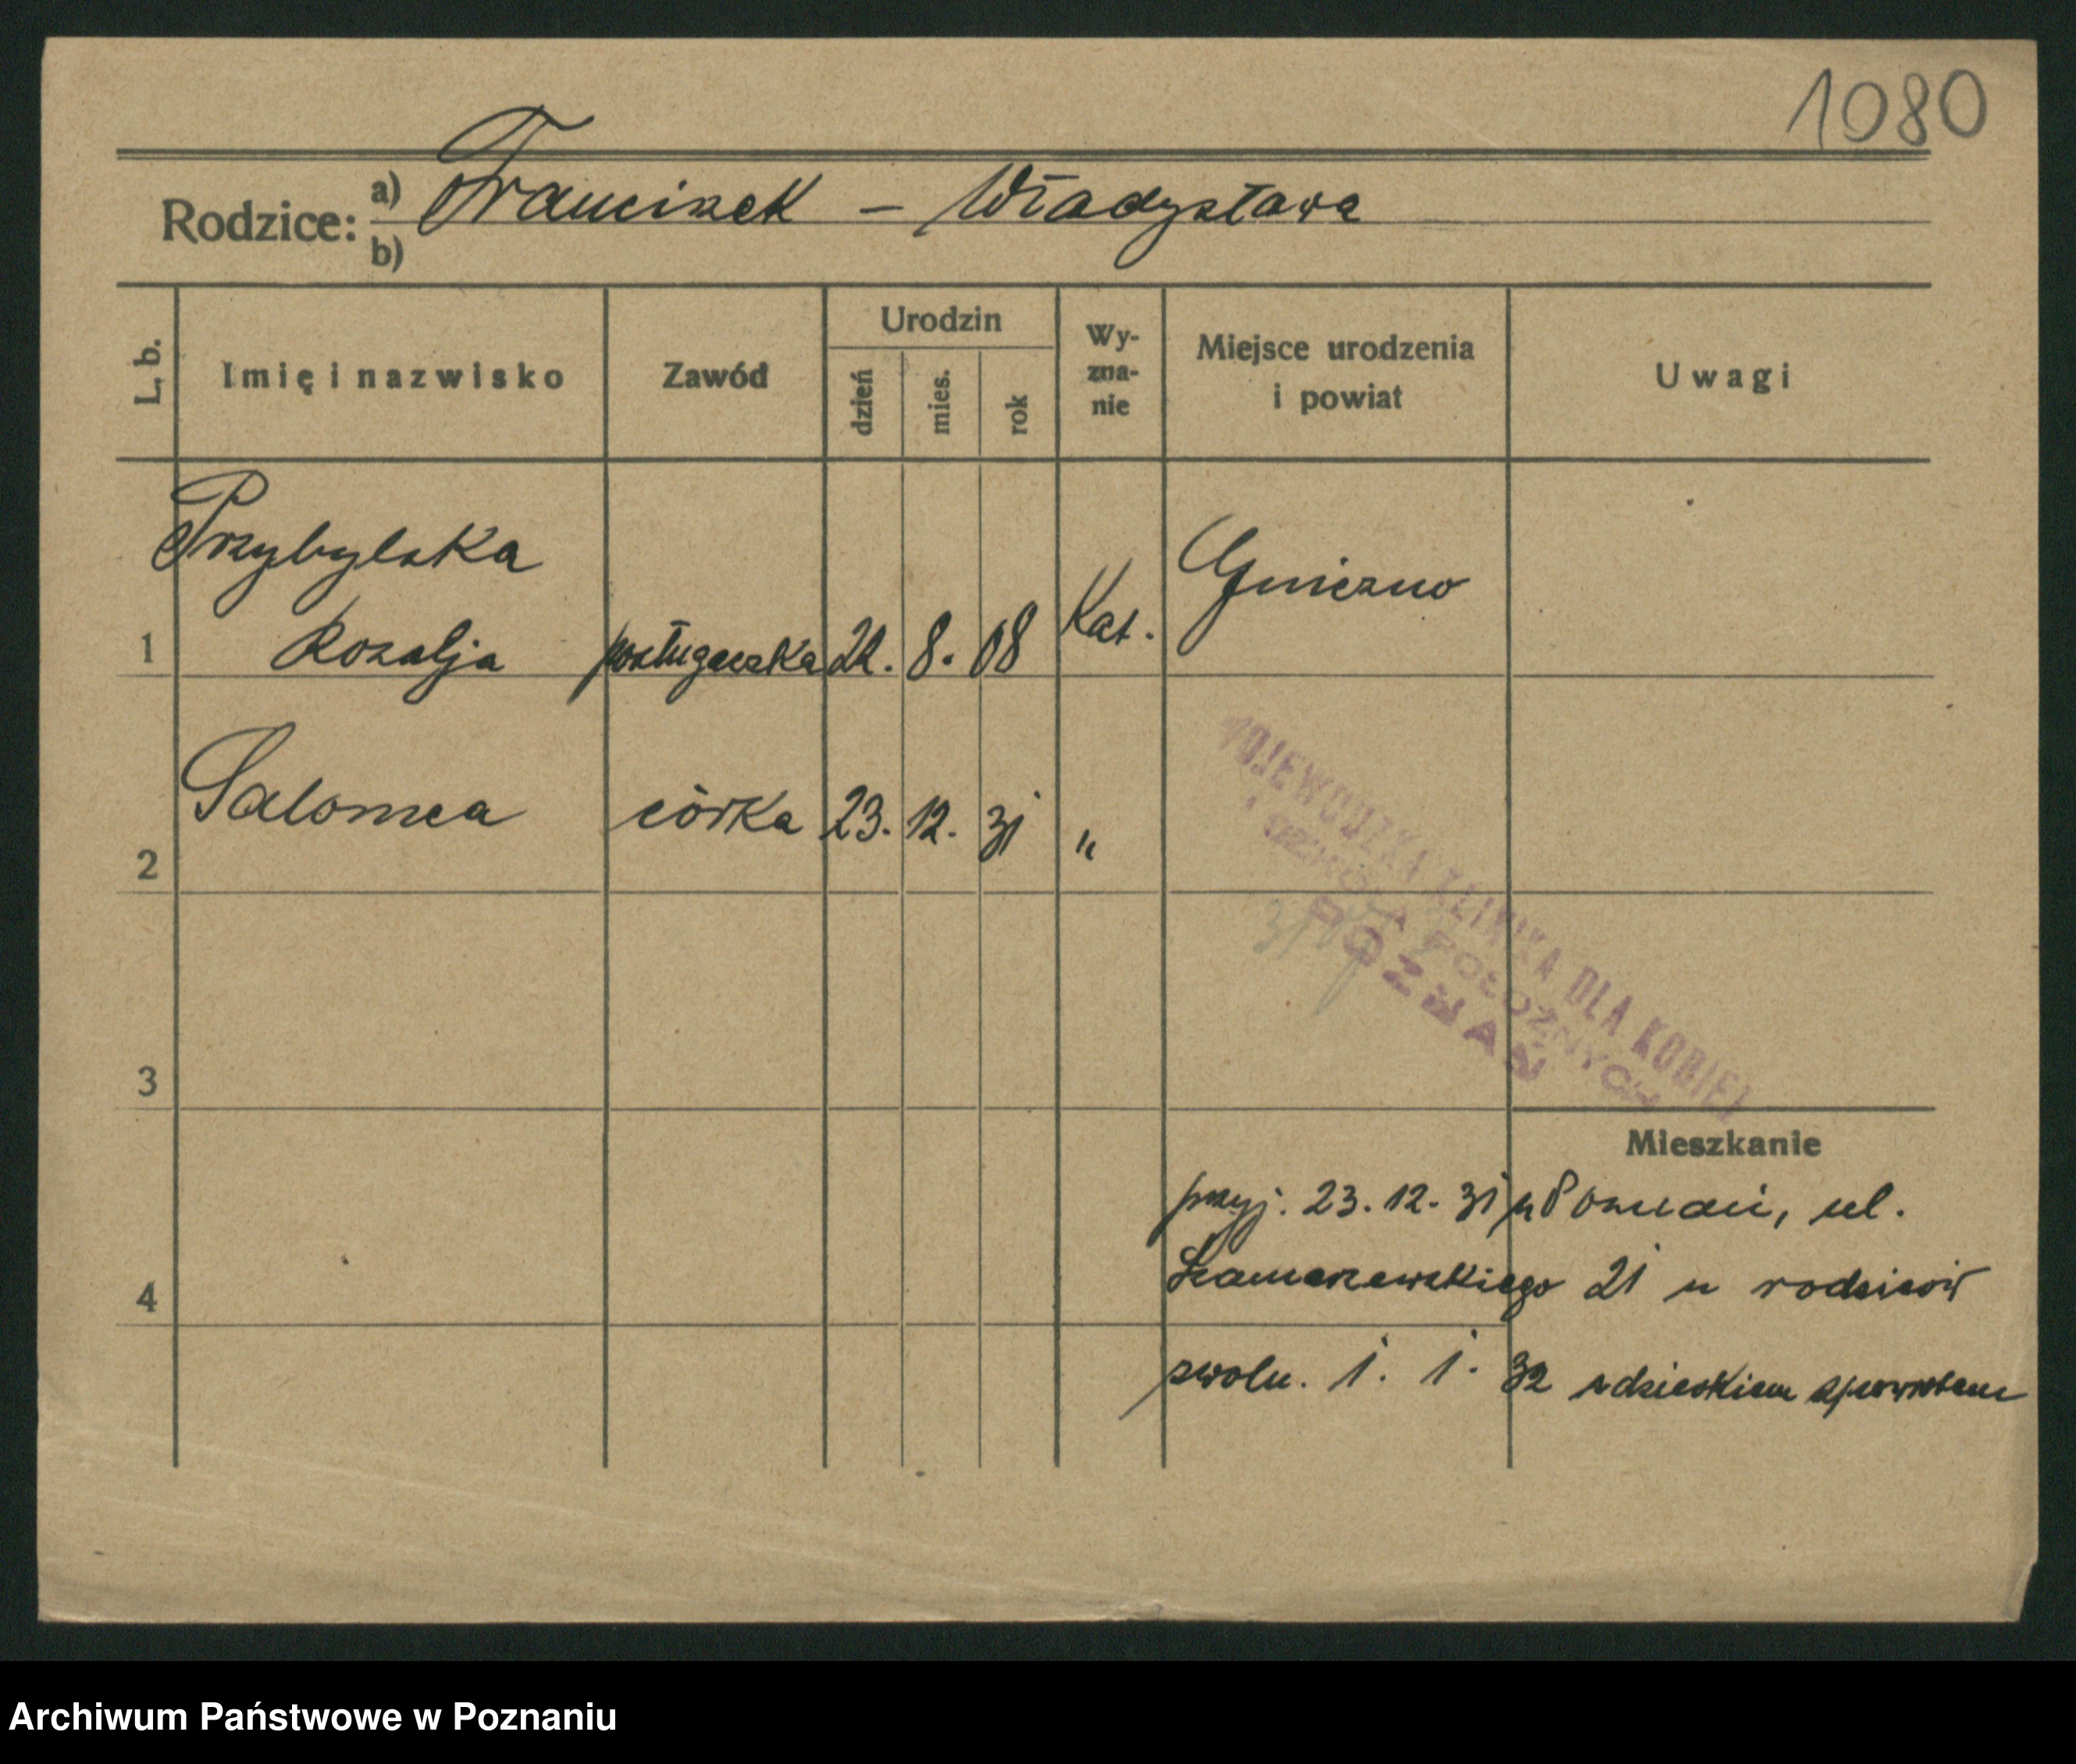 1080
Rodzice: a) Franciszek – Władysława
b)
L. b.
Imię i nazwisko
Zawód
Urodzin
dzień
mies.
rok
Wy-
zna-
nie
Miejsce urodzenia
i powiat
Uwagi
Przybylska
1 Rozalja posługaczka 22. 8. 08 Kat. Gniezno
2 Salomea córka 23. 12. 31 "
WOJEWÓDZKA KLINIKA DLA KOBIET
I SZKOŁA POŁOŻNYCH
POZNAŃ
3
Mieszkanie
przyj. 23. 12. 31 Poznań, ul.
4 Szamarzewskiego 21 u rodziców
zwoln. 1. 1. 32 z dzieckiem zpowrotem
Archiwum Państwowe w Poznaniu